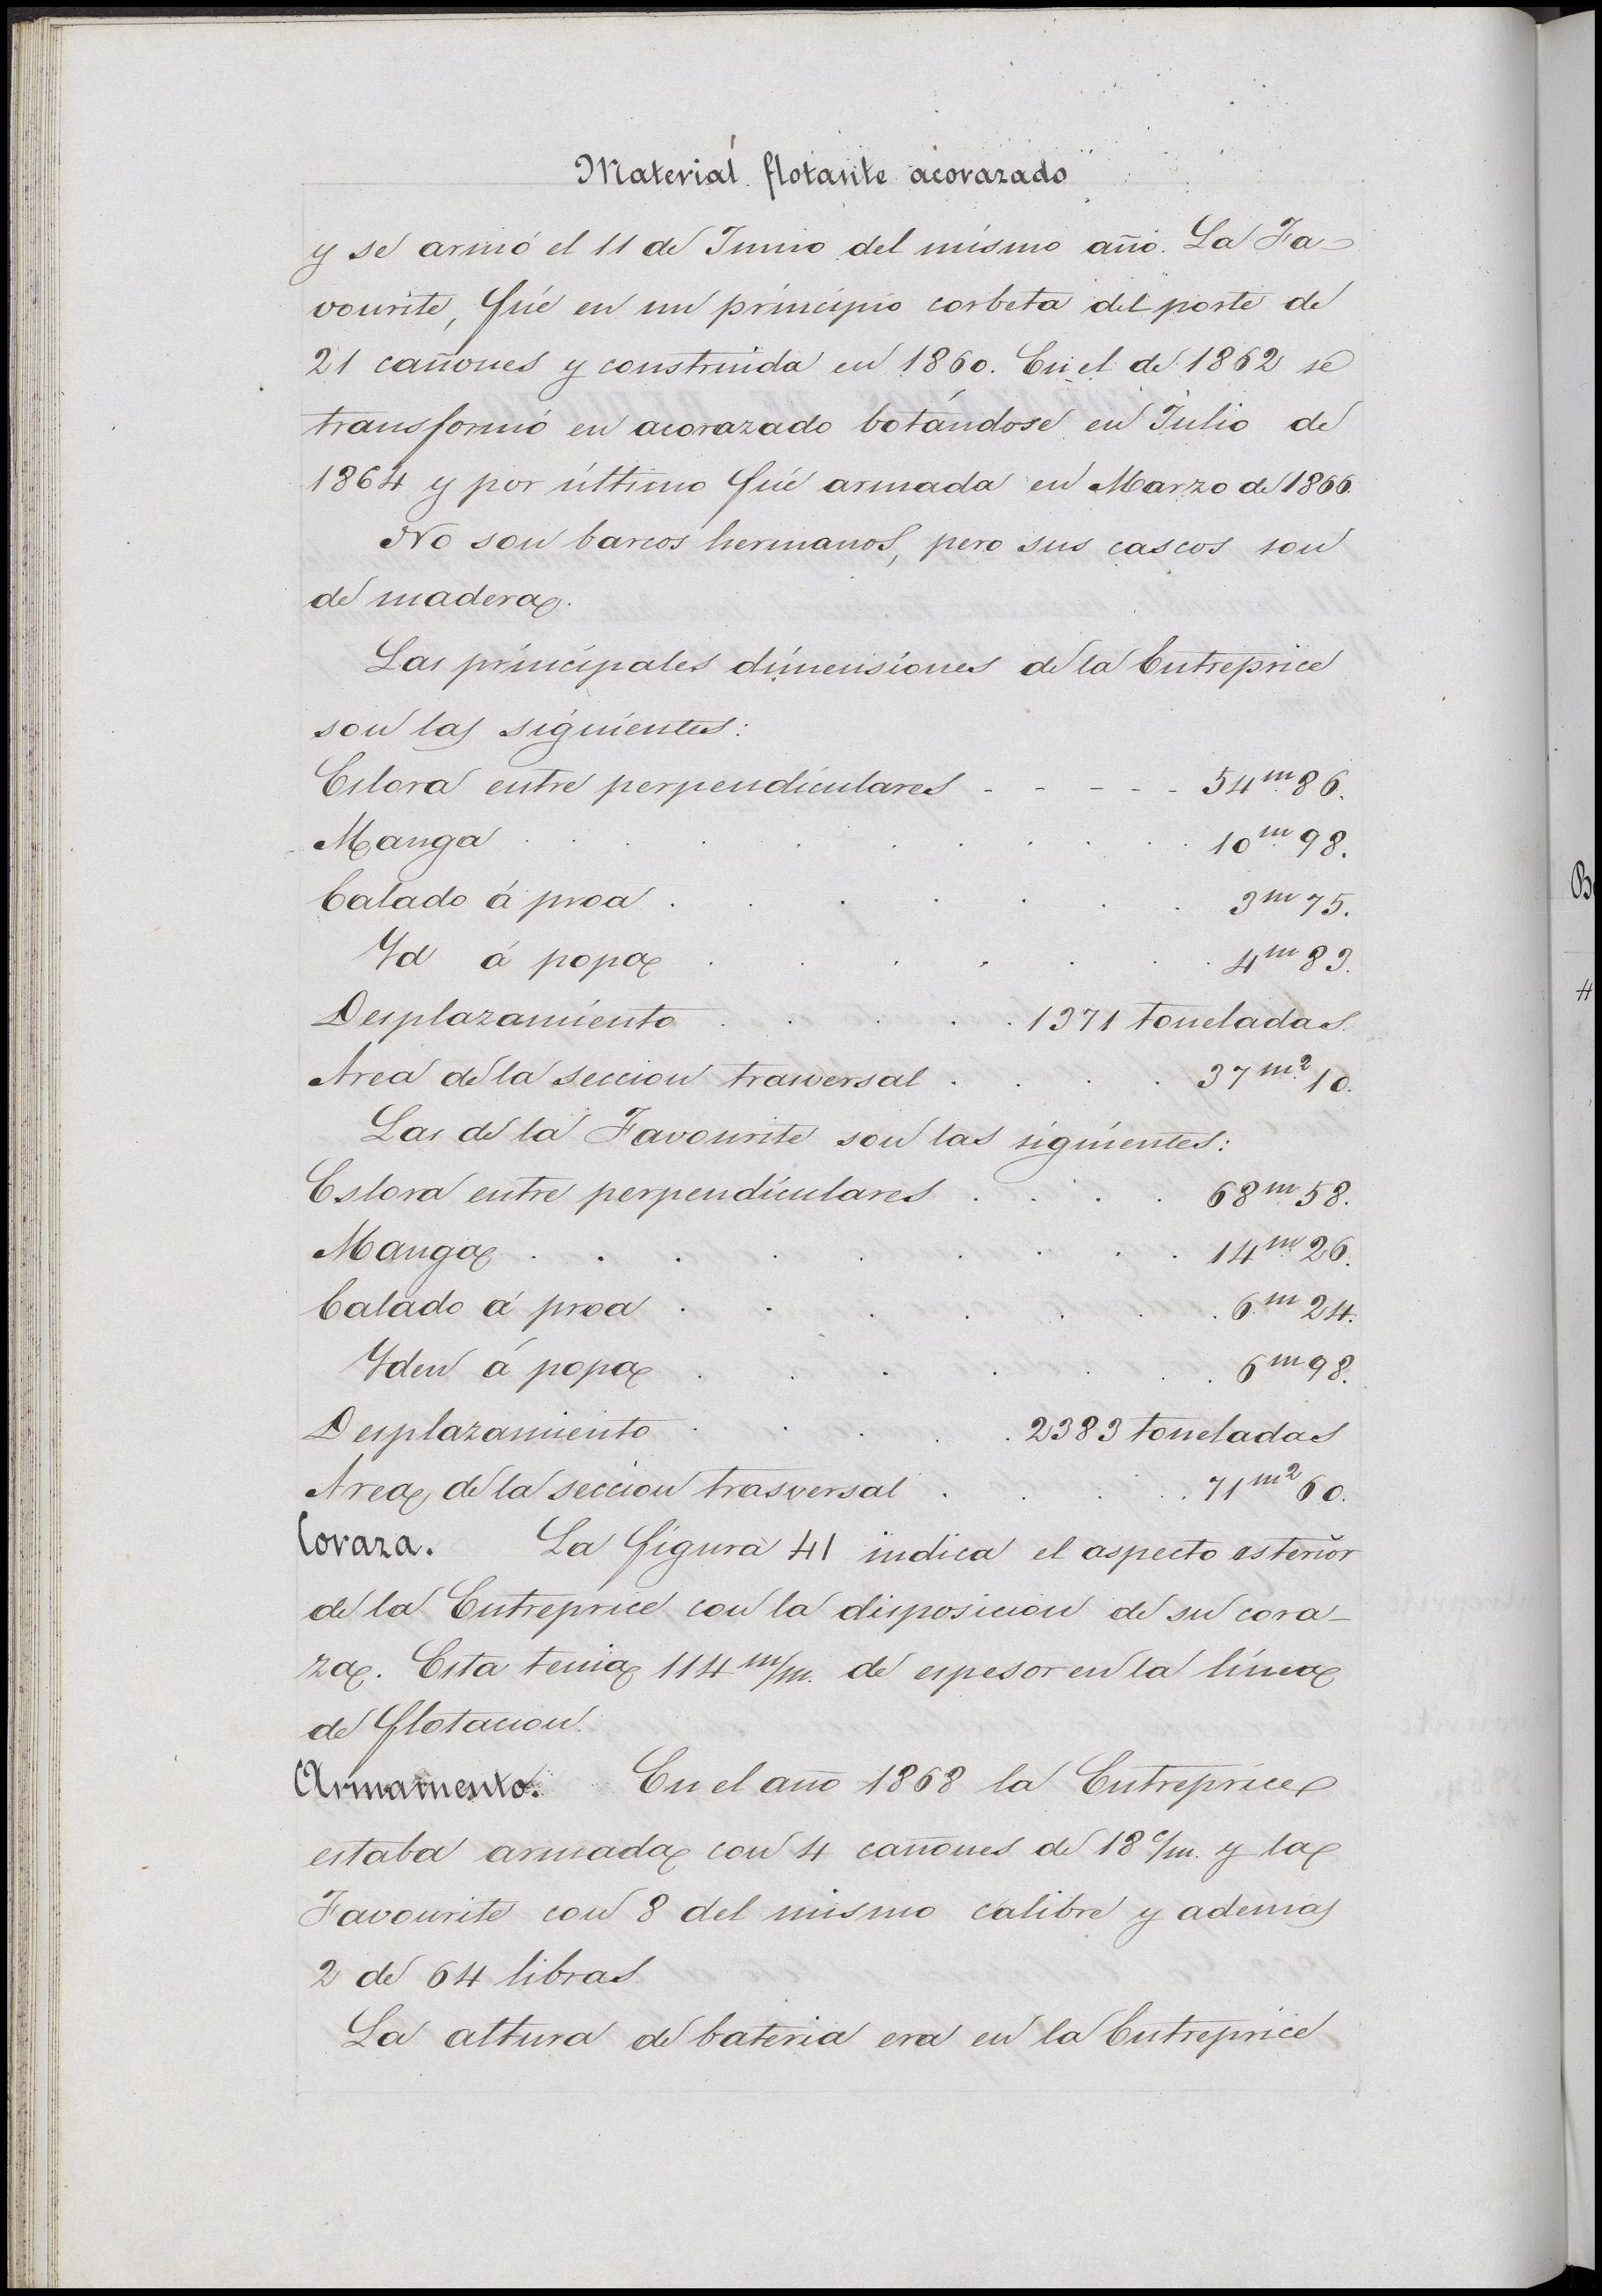 Material flotante acorazado
y se armó el 11 de Junio del mismo año. La Fa-
vourite, fué en un principio corbeta del porte de
21 cañones y construida en 1860. En el de 1862 se
transformó en acorazado botándose en Julio de
1864 y por último fué armada en Marzo de 1866.
No son barcos hermanos, pero sus cascos son
de madera.
Las principales dimensiones de la Entreprice
son las siguientes:
Eslora entre perpendiculares - - - - - 54m86.
Manga . . . . . . . . . . 10m98.
Calado á proa . . . . . . . 3m75.
Yd á popa . . . . . . . 4m83.
Desplazamiento . . . . . 1371 toneladas.
Area de la seccion trasversal . . . . 37m²10.
Las de la Favourite son las siguientes:
Eslora entre perpendiculares . . . . 68m58.
Manga . . . . . . . . . 14m26.
Calado á proa . . . . . . . 6m24.
Yden á popa . . . . . . . 6m98.
Desplazamiento . . . . . 2383 toneladas
Area, de la seccion trasversal . . . . 71m²60.
Coraza. La figura 41 indica el aspecto esterior
de la Entreprice con la disposicion de su cora-
za. Esta tenia 114 m/m. de espesor en la línea
de flotacion.
Armamento. En el año 1868 la Entreprice
estaba armada con 4 cañones de 18 c/m. y la
Favourite con 8 del mismo calibre y ademas
2 de 64 libras.
La altura de bateria era en la Entreprice